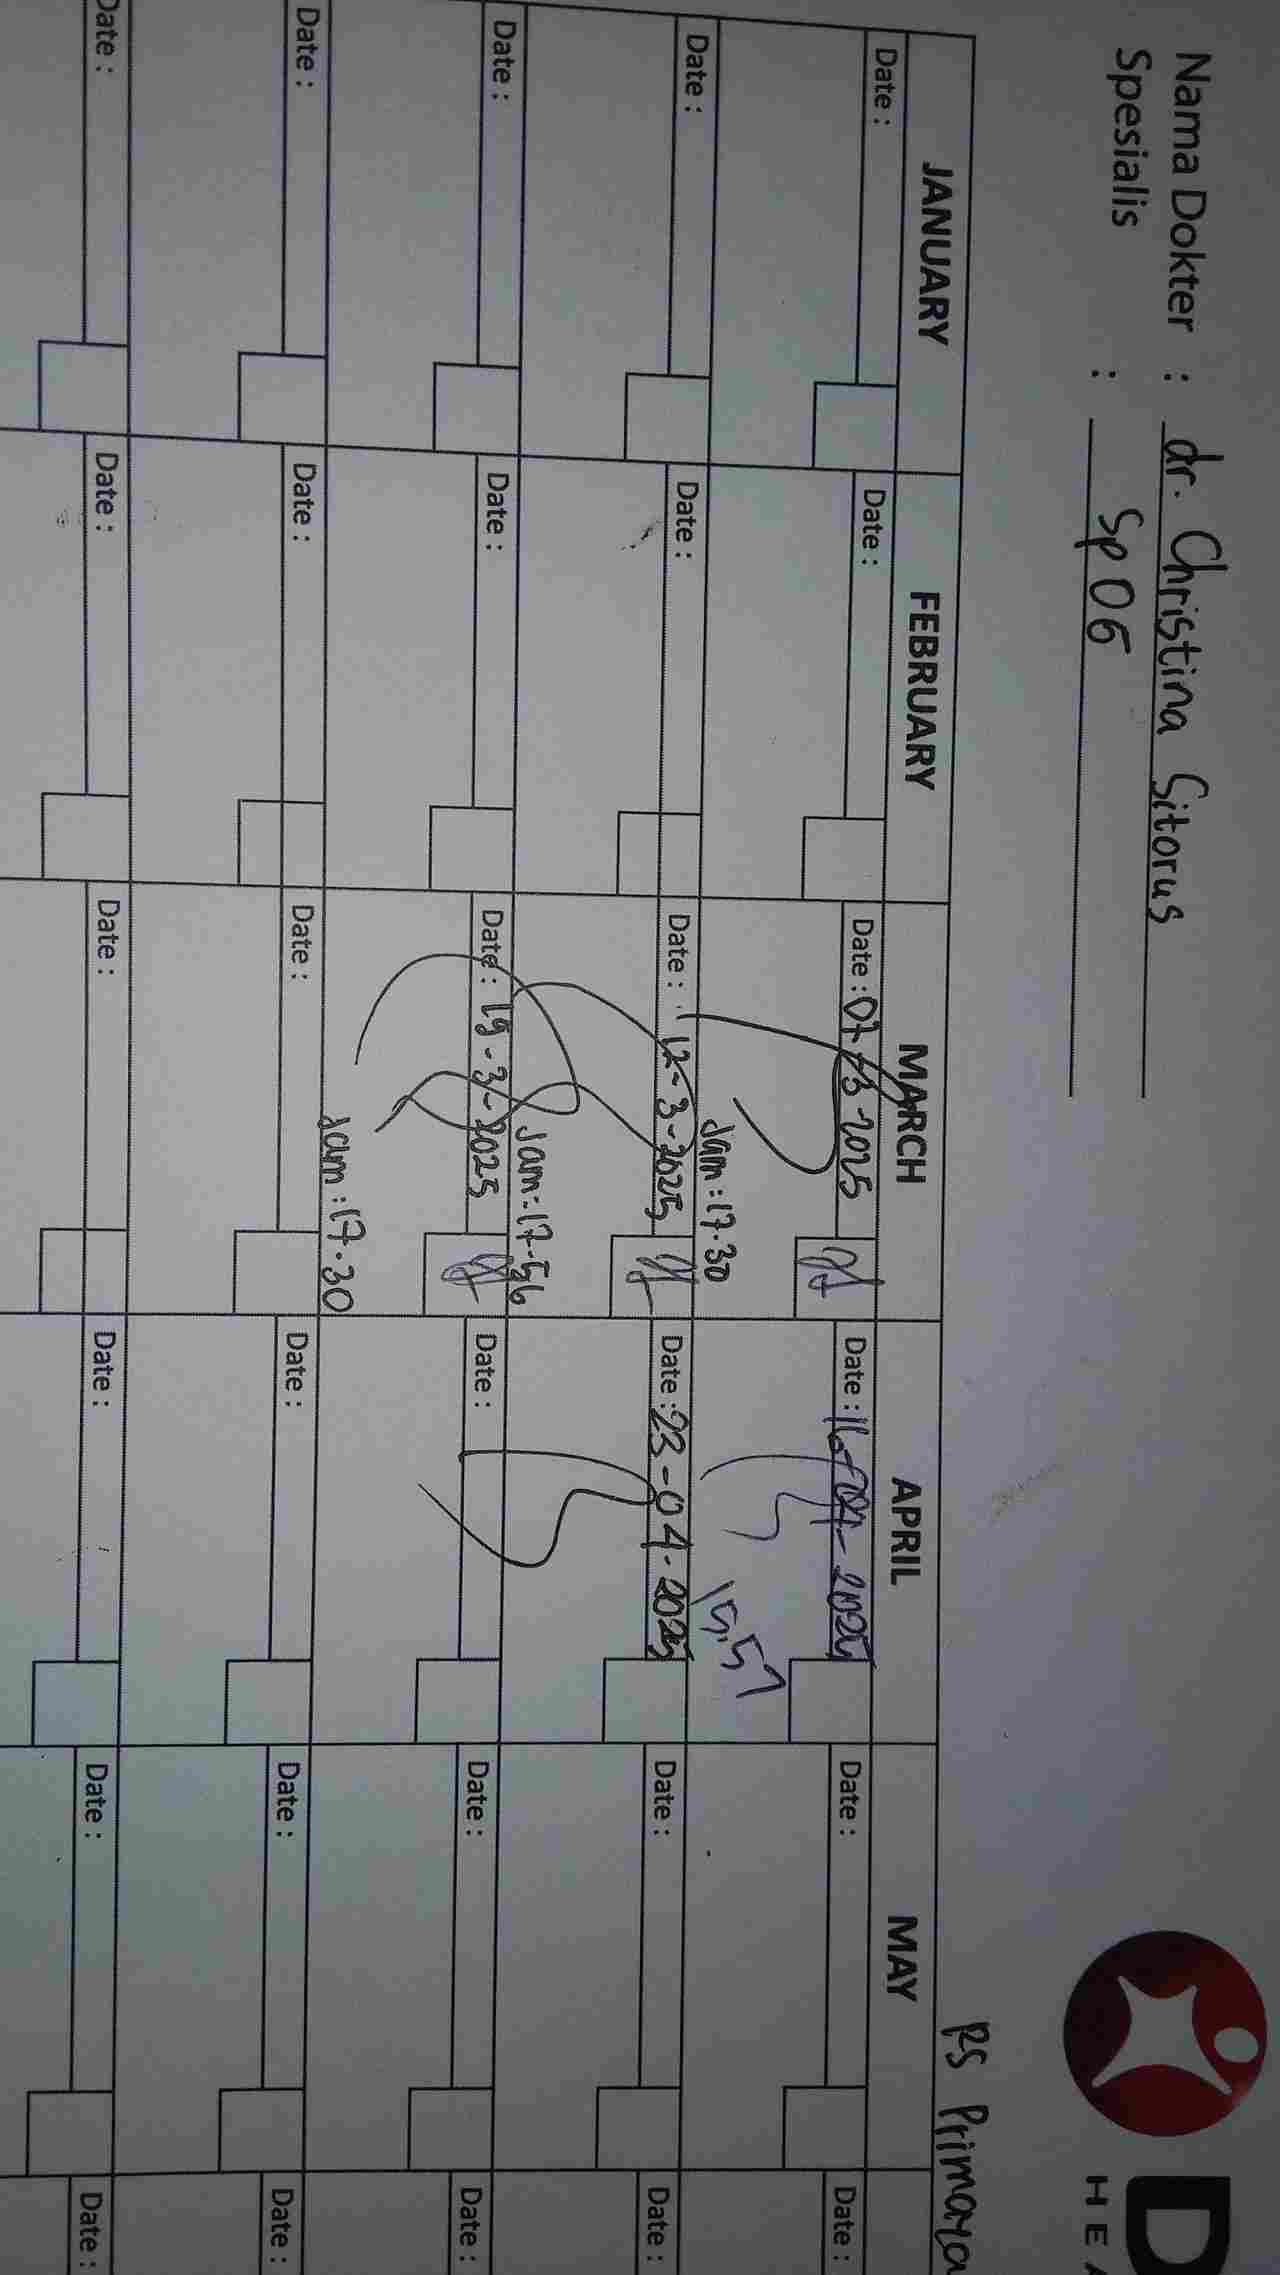 Nama Dokter : dr. Christina Sitorus
Spesialis : Sp OG
D
HEA
RS Primaya
JANUARY FEBRUARY MARCH APRIL MAY
Date : Date : Date : 07-03-2025 Date : 16-04-2025 Date : Date :
Jam : 17.30 15.57
Date : Date : Date : 12-3-2025 Date : 23-04-2025 Date : Date :
Jam : 17.56
Date : Date : Date : 19-3-2025 Date : Date : Date :
Jam : 17.30
Date : Date : Date : Date : Date : Date :
Date : Date : Date : Date : Date : Date :